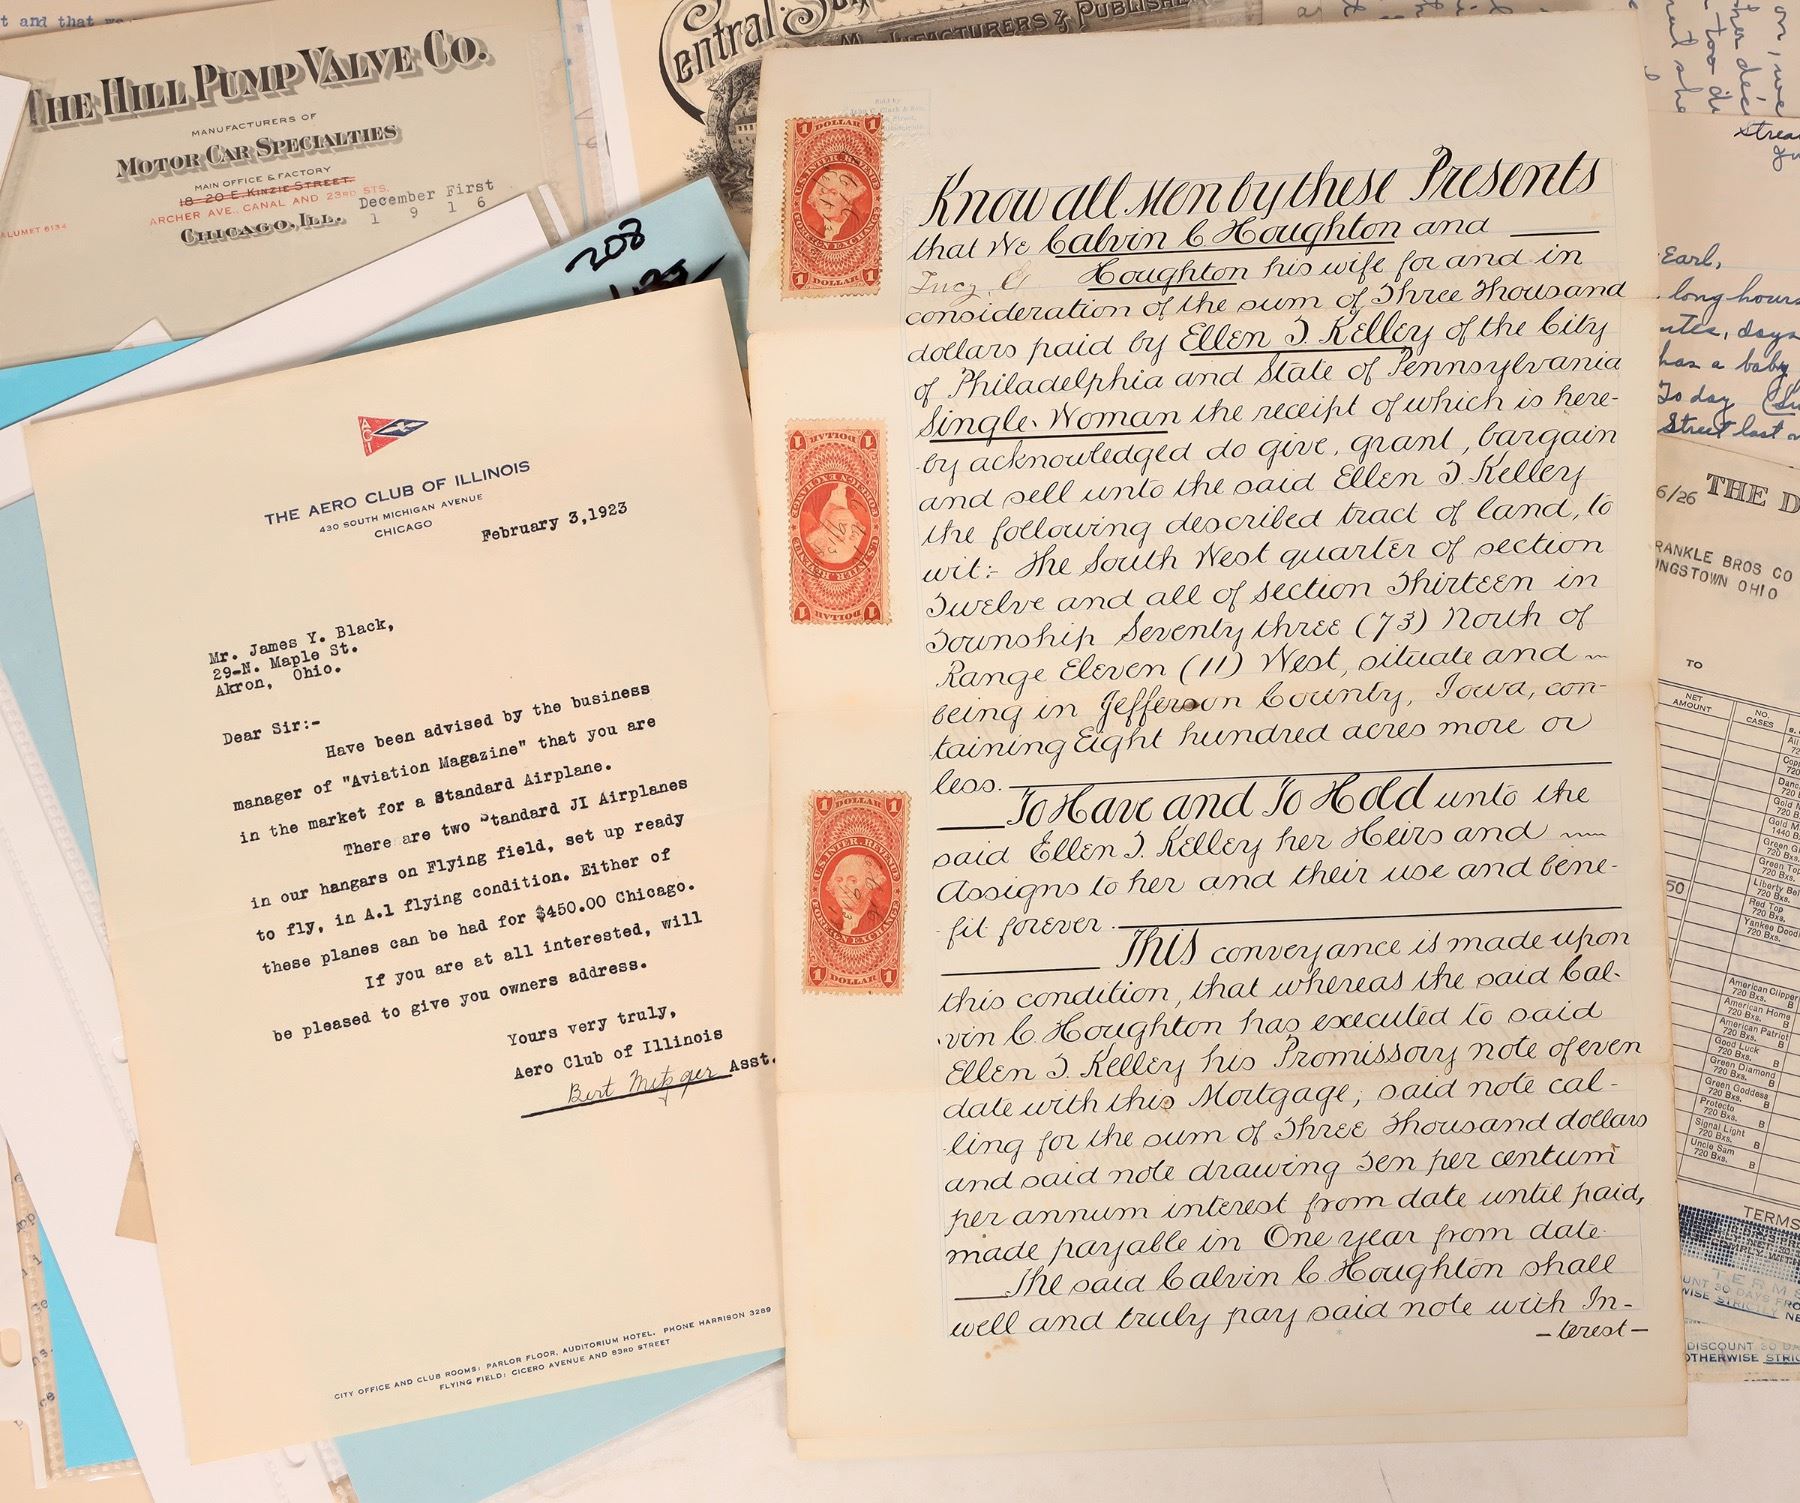 t and that we
THE HILL PUMP VALVE CO.
MANUFACTURERS OF
MOTOR CAR SPECIALTIES
MAIN OFFICE & FACTORY
18-20 E. KINZIE STREET.
ARCHER AVE., CANAL AND 23RD STS.
CHICAGO, ILL.
December First
1916
ALUMET 6134
208
Central
MANUFACTURERS & PUBLISHE
THE AERO CLUB OF ILLINOIS
430 SOUTH MICHIGAN AVENUE
CHICAGO
February 3,1923
Mr. James Y. Black,
29-N. Maple St.
Akron, Ohio.
Dear Sir:-
Have been advised by the business
manager of "Aviation Magazine" that you are
in the market for a Standard Airplane.
There are two Standard JI Airplanes
in our hangars on Flying field, set up ready
to fly, in A.1 flying condition. Either of
these planes can be had for $450.00 Chicago.
If you are at all interested, will
be pleased to give you owners address.
Yours very truly,
Aero Club of Illinois
Bert Metzger Asst.
CITY OFFICE AND CLUB ROOMS: PARLOR FLOOR, AUDITORIUM HOTEL. PHONE HARRISON 3289
FLYING FIELD: CICERO AVENUE AND 83RD STREET
1 DOLLAR 1
U.S. INTER. REVENUE
FOREIGN EXCHANGE
1 DOLLAR 1
1 DOLLAR 1
U.S. INTER. REVENUE
FOREIGN EXCHANGE
1 DOLLAR 1
1 DOLLAR 1
U.S. INTER. REVENUE
FOREIGN EXCHANGE
1 DOLLAR 1
Know all Men by these Presents
that We Calvin C Houghton and
Lucy G Houghton his wife for and in
consideration of the sum of Three Thousand
dollars paid by Ellen T. Kelley of the City
of Philadelphia and State of Pennsylvania
Single Woman the receipt of which is here-
by acknowledged do give, grant, bargain
and sell unto the said Ellen T. Kelley
the following described tract of land, to
wit:- The South West quarter of section
Twelve and all of section Thirteen in
Township Seventy three (73) North of
Range Eleven (11) West, situate and
being in Jefferson County, Iowa, con-
taining Eight hundred acres more or
less.
To Have and To Hold unto the
said Ellen T. Kelley her Heirs and
Assigns to her and their use and bene-
fit forever.
This conveyance is made upon
this condition, that whereas the said Cal-
vin C Houghton has executed to said
Ellen T. Kelley his Promissory note of even
date with this Mortgage, said note cal-
ling for the sum of Three Thousand dollars
and said note drawing Ten per centum
per annum interest from date until paid,
made payable in One year from date
The said Calvin C. Houghton shall
well and truly pay said note with In-
-terest-
Earl,
long hours
days
has a baby
Today
Street last
6/26 THE D
RANKLE BROS CO
UNGSTOWN OHIO
TO
NET
AMOUNT
NO.
CASES
50
Liberty Bel
720 Bxs.
Red Top
720 Bxs.
Yankee Dood
720 Bxs.
American Clipper
720 Bxs. B
American Home
720 Bxs. B
American Patriot
720 Bxs. B
Good Luck B
720 Bxs.
Green Diamond
720 Bxs. B
Green Goddess
720 Bxs. B
Protecto
720 Bxs. B
Signal Light
720 Bxs. B
Uncle Sam
720 Bxs. B
TERMS
TERMS
UNT 30 DAYS FRO
WISE STRICTLY NE
DISCOUNT 30 DA
OTHERWISE STRIC